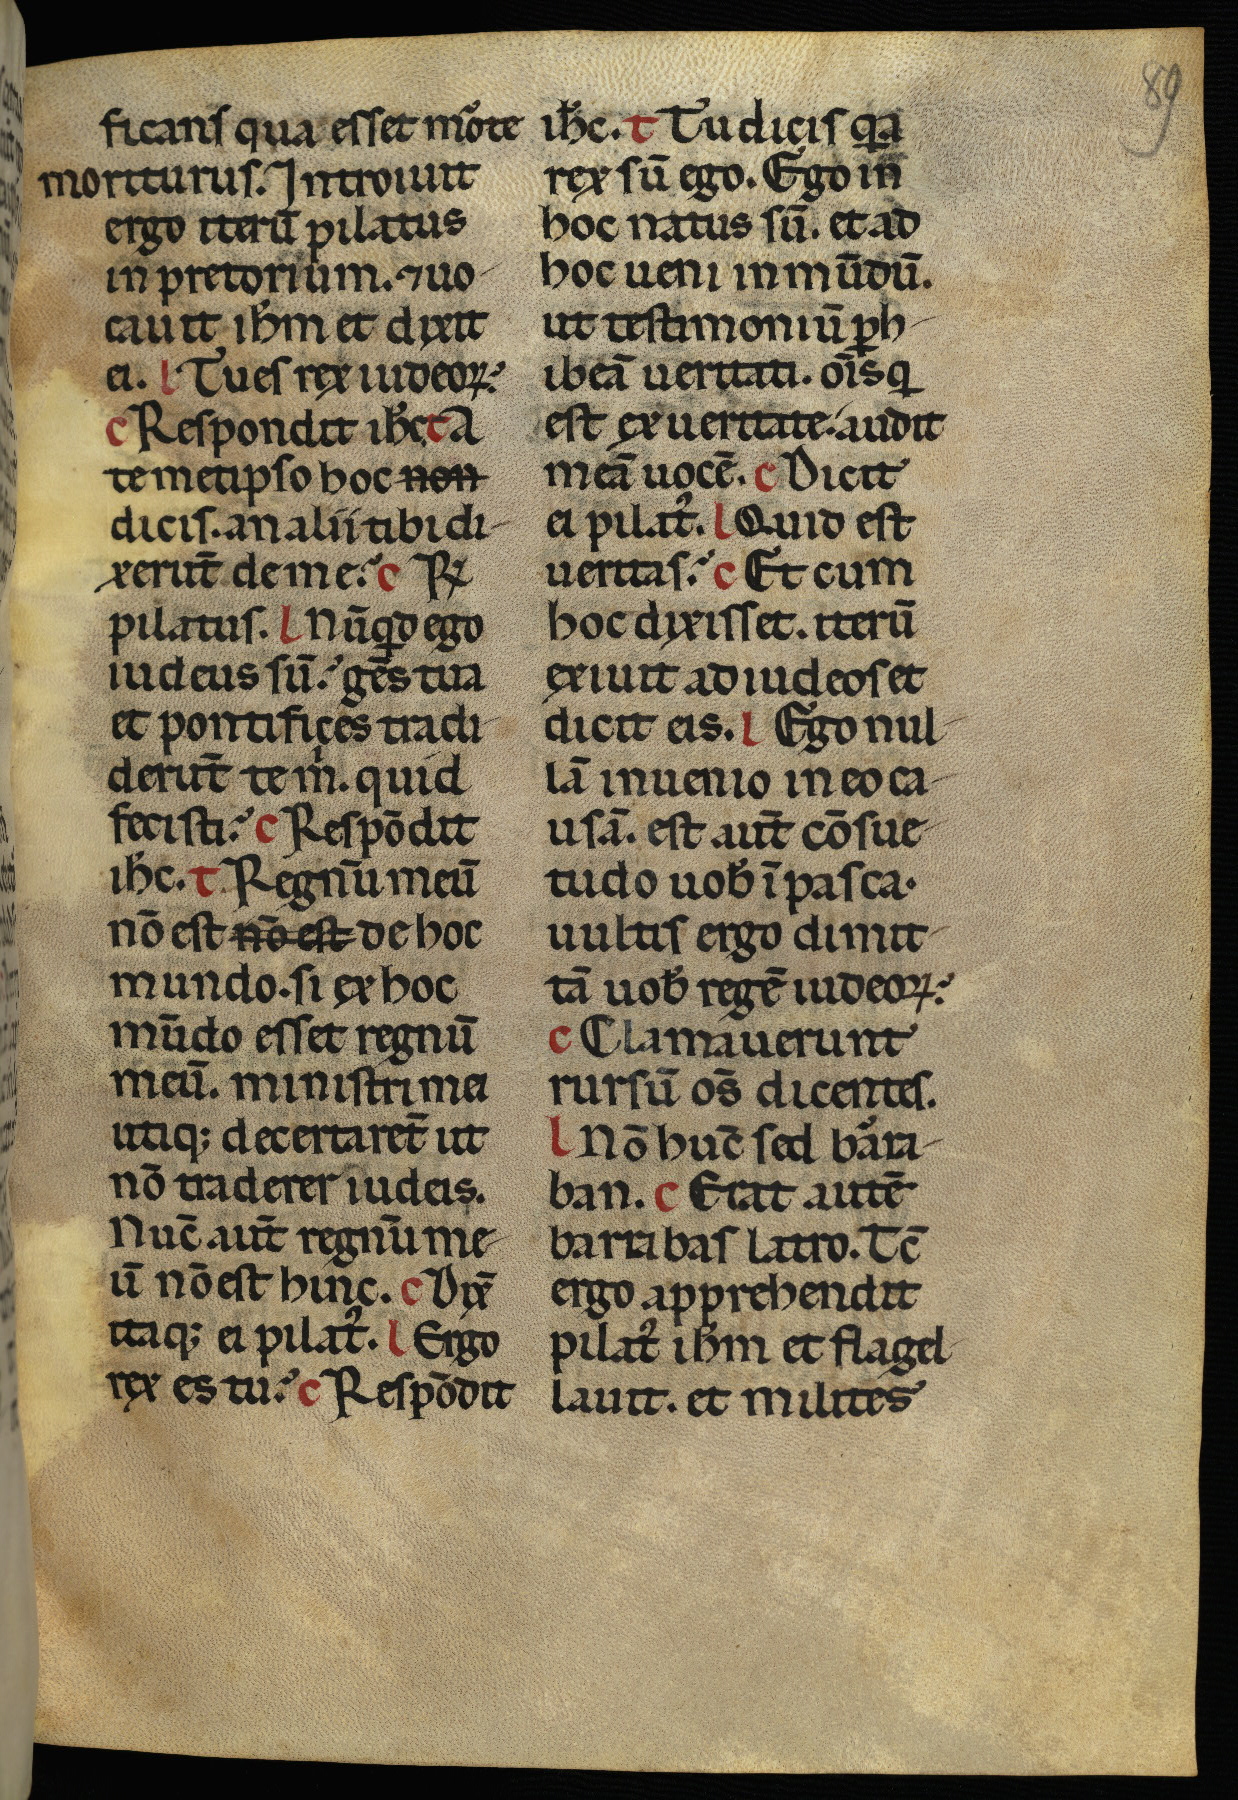 89
ficans qua esset mo᷒te
moritturus. Introiuit
ergo iterū pilatus
in pretorium. ⁊ uo-
cauit ih̅m et dixit
ei. l Tu es rex iudeoꝝ?
c Respondit ih̅c t A
temetipso hoc non
dicis. an alii tibi di-
xerūt de me? c R̄
pilatus. l Nūqͥd ego
iudeus sū? gēs tua
et pontifices tradi-
derūt te m̍. quid
fecisti? c Respōdit
ih̅c. t Regnū meū
nō est nō est de hoc
mundo. si ex hoc
mūdo esset regnū
meū. ministri mei
utiqꝫ decertarēt ut
nō traderer iudeis.
Nūc aūt regnū me-
ū nō est hinc. c Dix̄
itaqꝫ ei pilat᷒. l Ergo
rex es tu? c Respōdit
ih̅c. t Tu dicis qͣa
rex sū ego. Ego in
hoc natus sū. et ad
hoc ueni in mūdū.
ut testimoniū ꝑh-
ibeā ueritati. oīs q
est ex ueritate. audit
meā uocē. c Dicit
ei pilat᷒. l Quid est
ueritas? c Et cum
hoc dixisset. iterū
exiuit ad iudeos et
dicit eis. l Ego nul-
lā inuenio in eo ca-
usā. est aūt cōsue-
tudo uob̅ ī pasca.
uultis ergo dimit-
tā uob̅ regē iudeoꝝ?
c Clamauerunt
rursū oēs dicentes.
l Nō hūc sed bara-
ban. c Erat autē
barrabas latro. Tc̄
ergo apprehendit
pilat᷒ ih̅m et flagel-
lauit. et milites